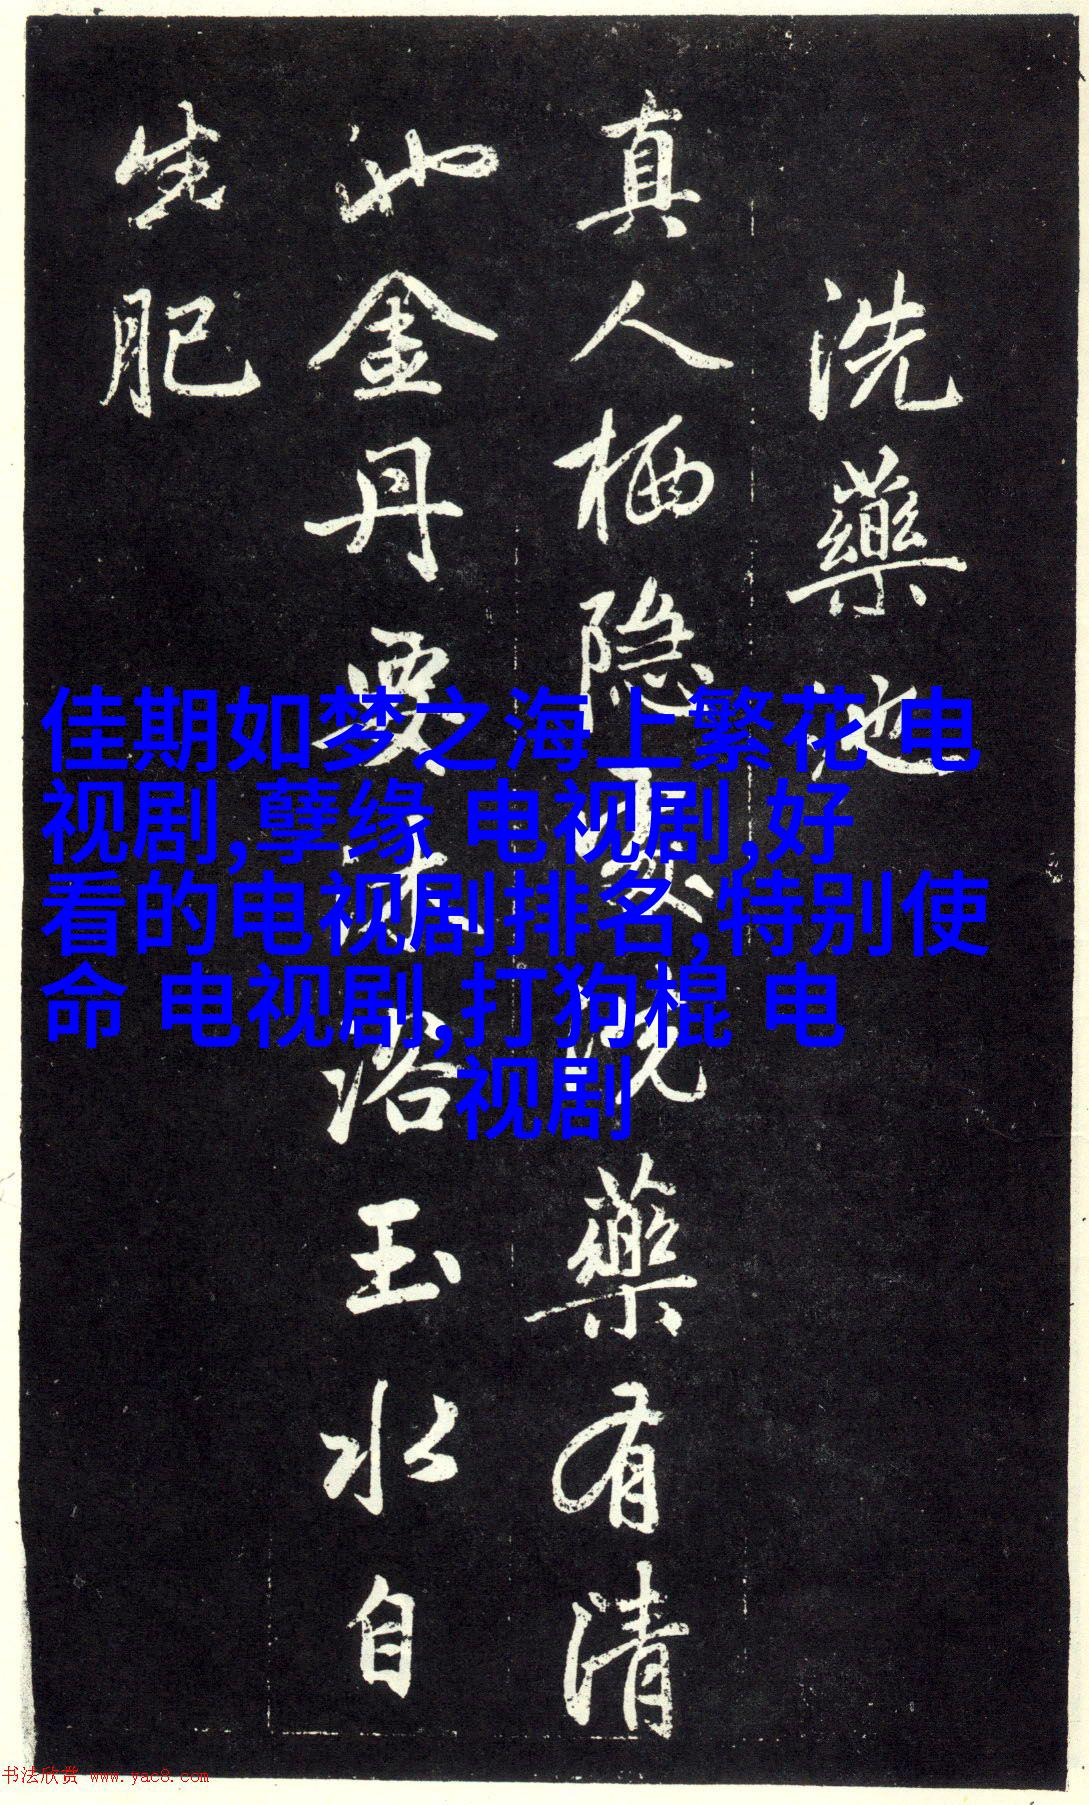 洗藥池
真人栖隐處洗藥有清
池金丹要沐浴玉水自
生肥
佳期如梦之海上繁花 电
视剧,孽缘 电视剧,好
看的电视剧排名,特别使
命 电视剧,打狗棍 电
视剧
书法欣赏 www.yac8.com